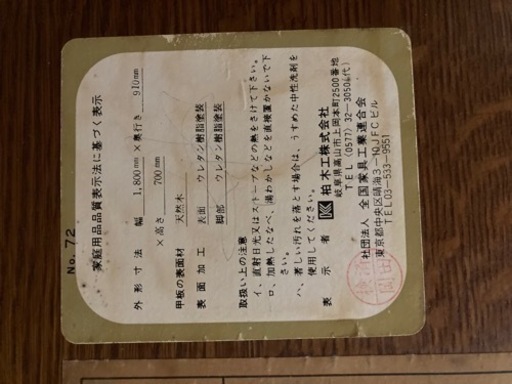 No. 72
家庭用品品質表示法に基づく表示
外形寸法 幅 1,800mm × 奥行き 910mm
× 高さ 700mm
甲板の表面材 天然木
表面加工 表面 ウレタン樹脂塗装
脚部 ウレタン樹脂塗装
取扱い上の注意
イ、直射日光又はストーブなどの熱をさけて下さい。
ロ、加熱したなべ、湯わかしなどを直接置かないで下
さい。
ハ、著しい汚れを落とす場合は、うすめた中性洗剤を
使用してください。
表示者 柏木工株式会社
岐阜県高山市上岡本町2500番地
TEL (0577) 32-3050(代)
社団法人 全国家具工業連合会
東京都中央区晴海3-10JFCビル
TEL03-533-9551